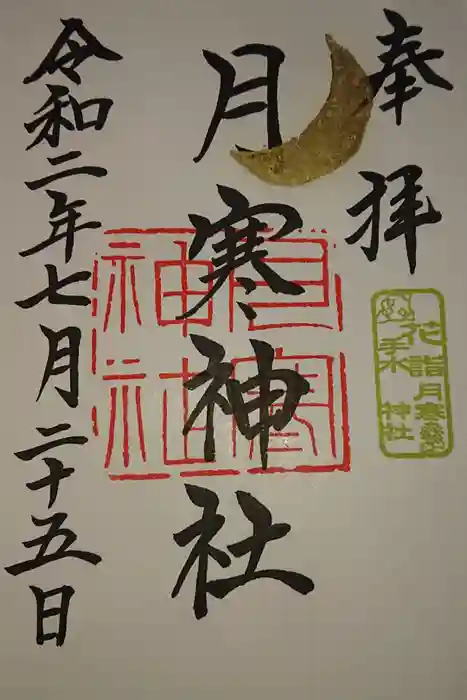 奉拝
月寒神社
月寒神社
花詣
手水
月寒神社
令和二年七月二十五日